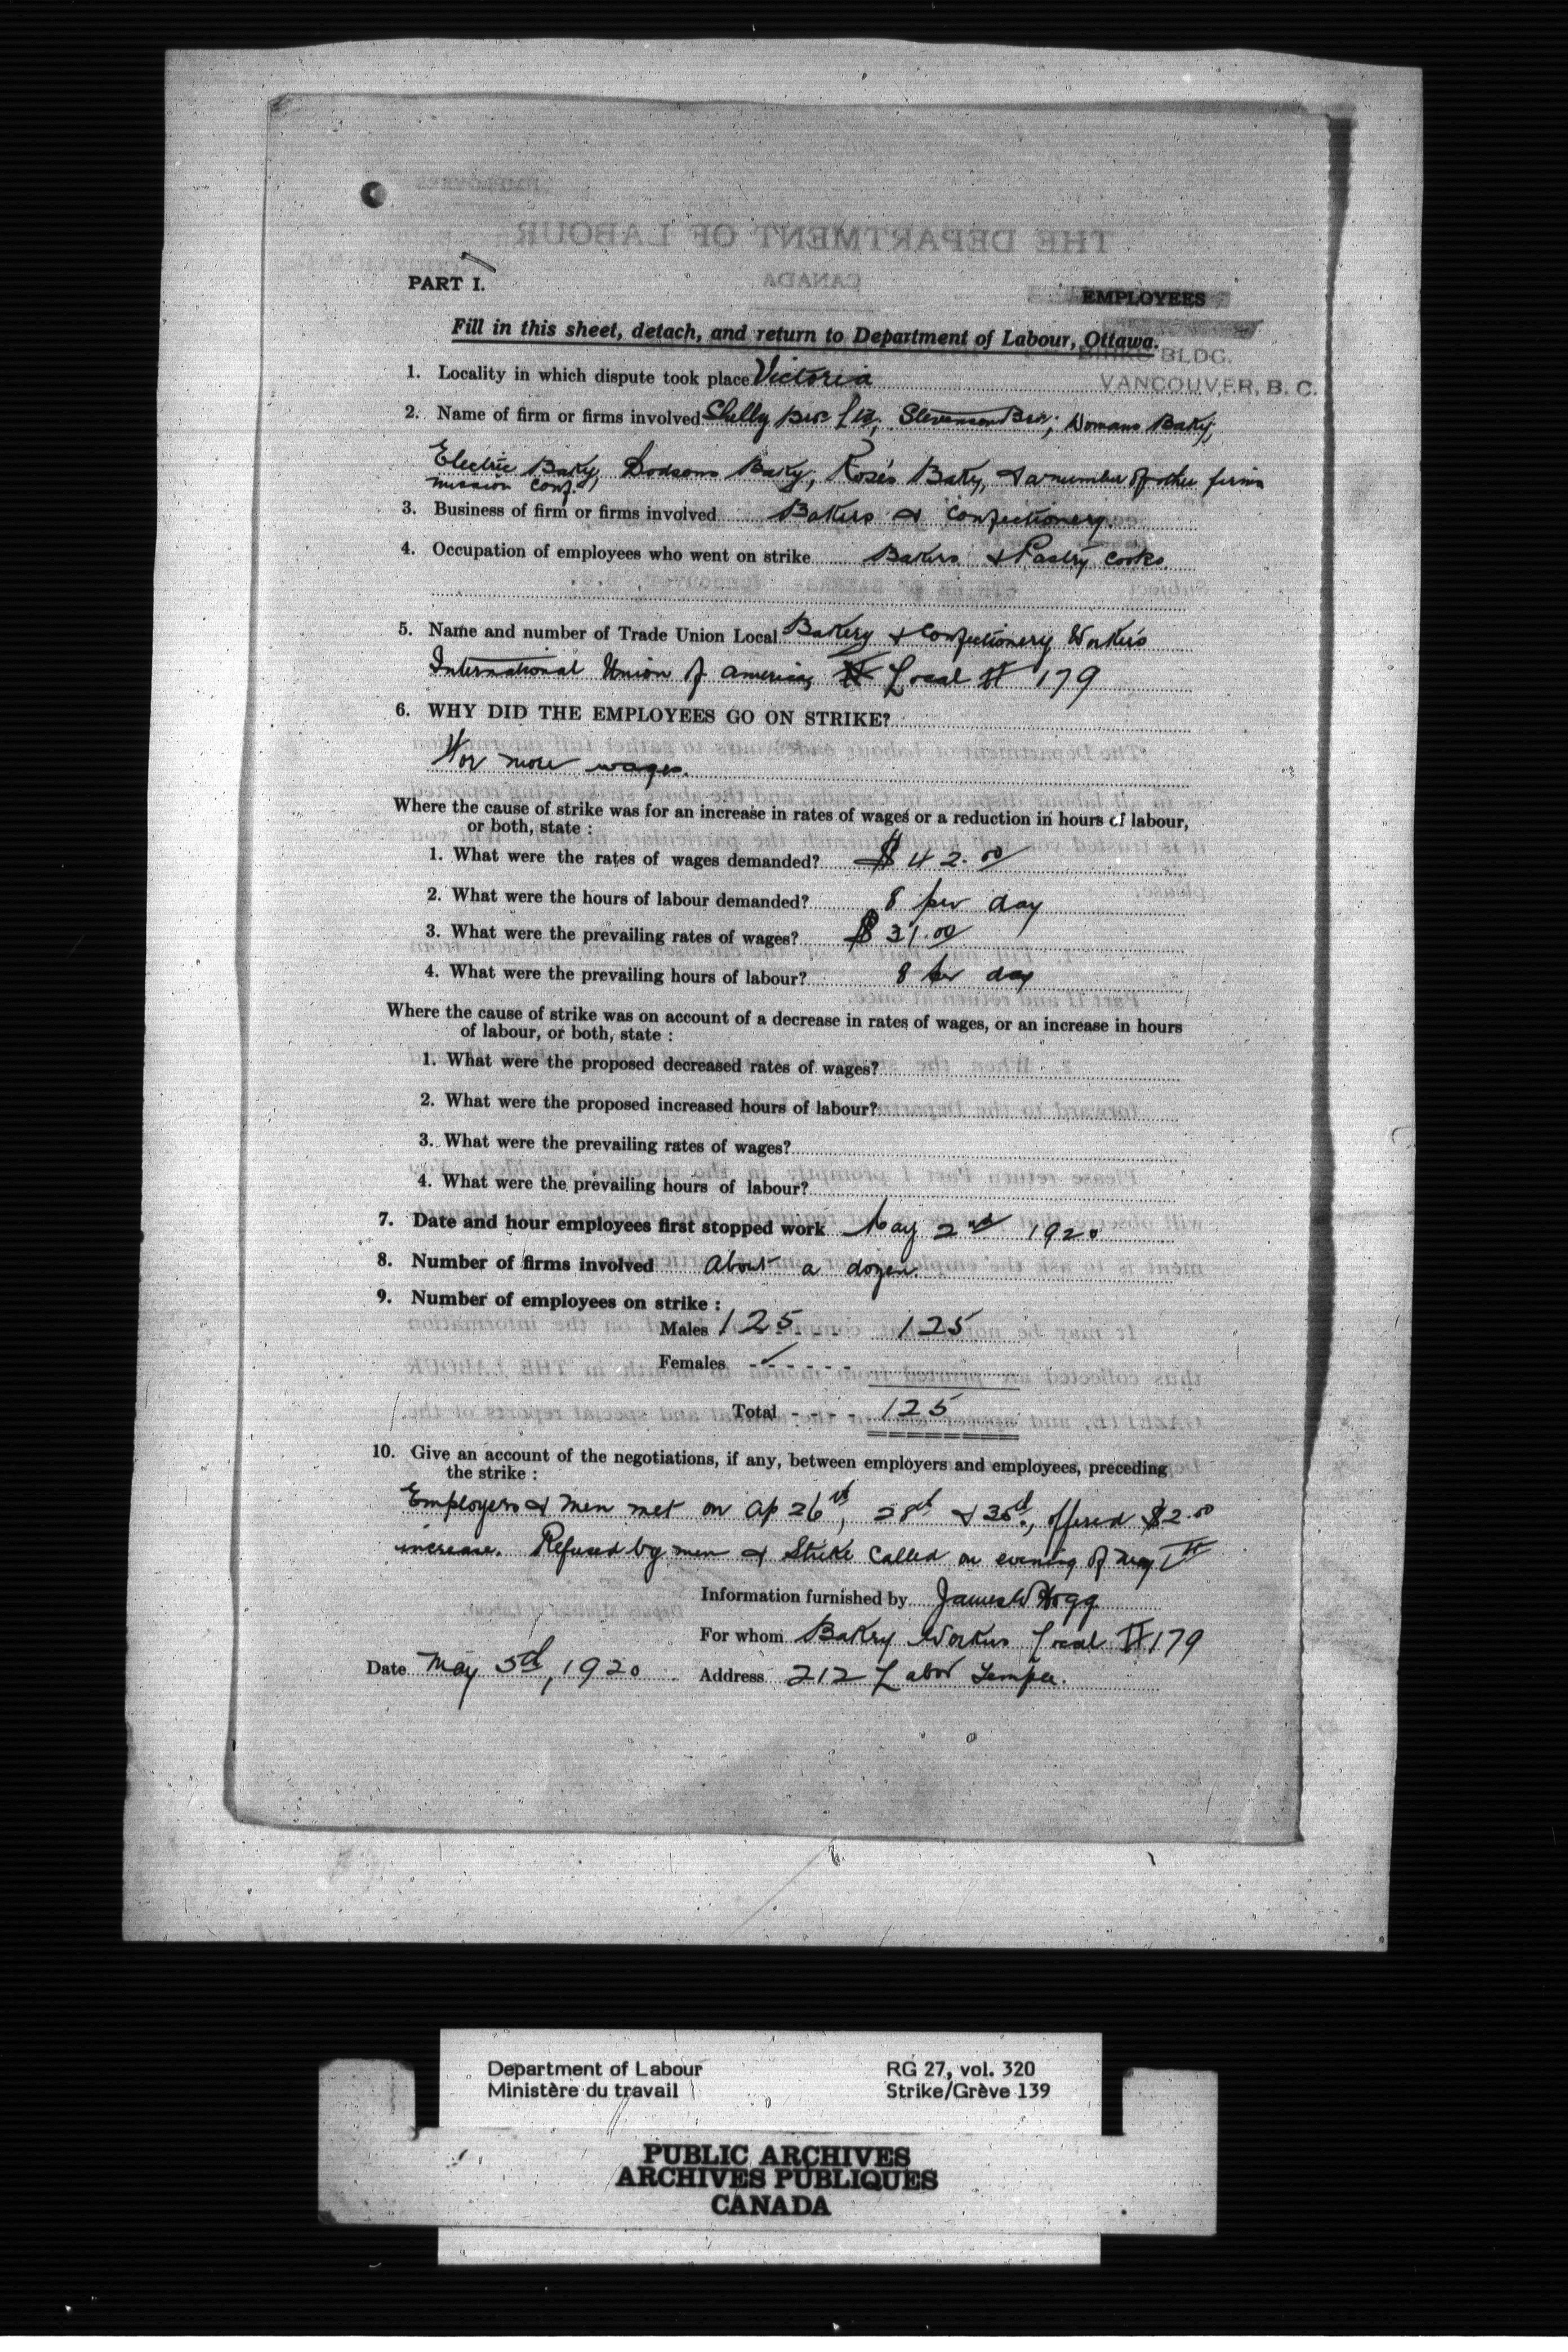 PART I.
EMPLOYEES
Fill in this sheet, detach, and return to Department of Labour, Ottawa.
BLDG.
VANCOUVER, B. C.
1. Locality in which dispute took place Victoria
2. Name of firm or firms involved Shelly Bros Ltd, Stevenson Bros; Womans Baky;
Electric Baky, Dodsons Baky; Rose's Baky, & a number of other firms
mission conf.
3. Business of firm or firms involved Bakers & Confectionery.
4. Occupation of employees who went on strike Bakers & Pastry Cooks.
5. Name and number of Trade Union Local Bakery & Confectionery Workers
International Union of America, Local # 179
6. WHY DID THE EMPLOYEES GO ON STRIKE?
For more wages.
Where the cause of strike was for an increase in rates of wages or a reduction in hours of labour,
or both, state :
1. What were the rates of wages demanded? $42.00
2. What were the hours of labour demanded? 8 per day
3. What were the prevailing rates of wages? $31.00
4. What were the prevailing hours of labour? 8 per day
Where the cause of strike was on account of a decrease in rates of wages, or an increase in hours
of labour, or both, state :
1. What were the proposed decreased rates of wages?
2. What were the proposed increased hours of labour?
3. What were the prevailing rates of wages?
4. What were the prevailing hours of labour?
7. Date and hour employees first stopped work May 2nd 1920
8. Number of firms involved About a dozen.
9. Number of employees on strike :
Males 125 - - - 125
Females - - - - - -
Total - - - - 125
10. Give an account of the negotiations, if any, between employers and employees, preceding
the strike :
Employers & men met on Ap 26th, 28th & 30th, offered $2.00
increase. Refused by men & Strike Called on evening of May 1st
Information furnished by James W Hogg
For whom Bakery Workers Local #179
Date May 5th, 1920 Address 212 Labor Temple.
Department of Labour RG 27, vol. 320
Ministère du travail Strike/Grève 139
PUBLIC ARCHIVES
ARCHIVES PUBLIQUES
CANADA